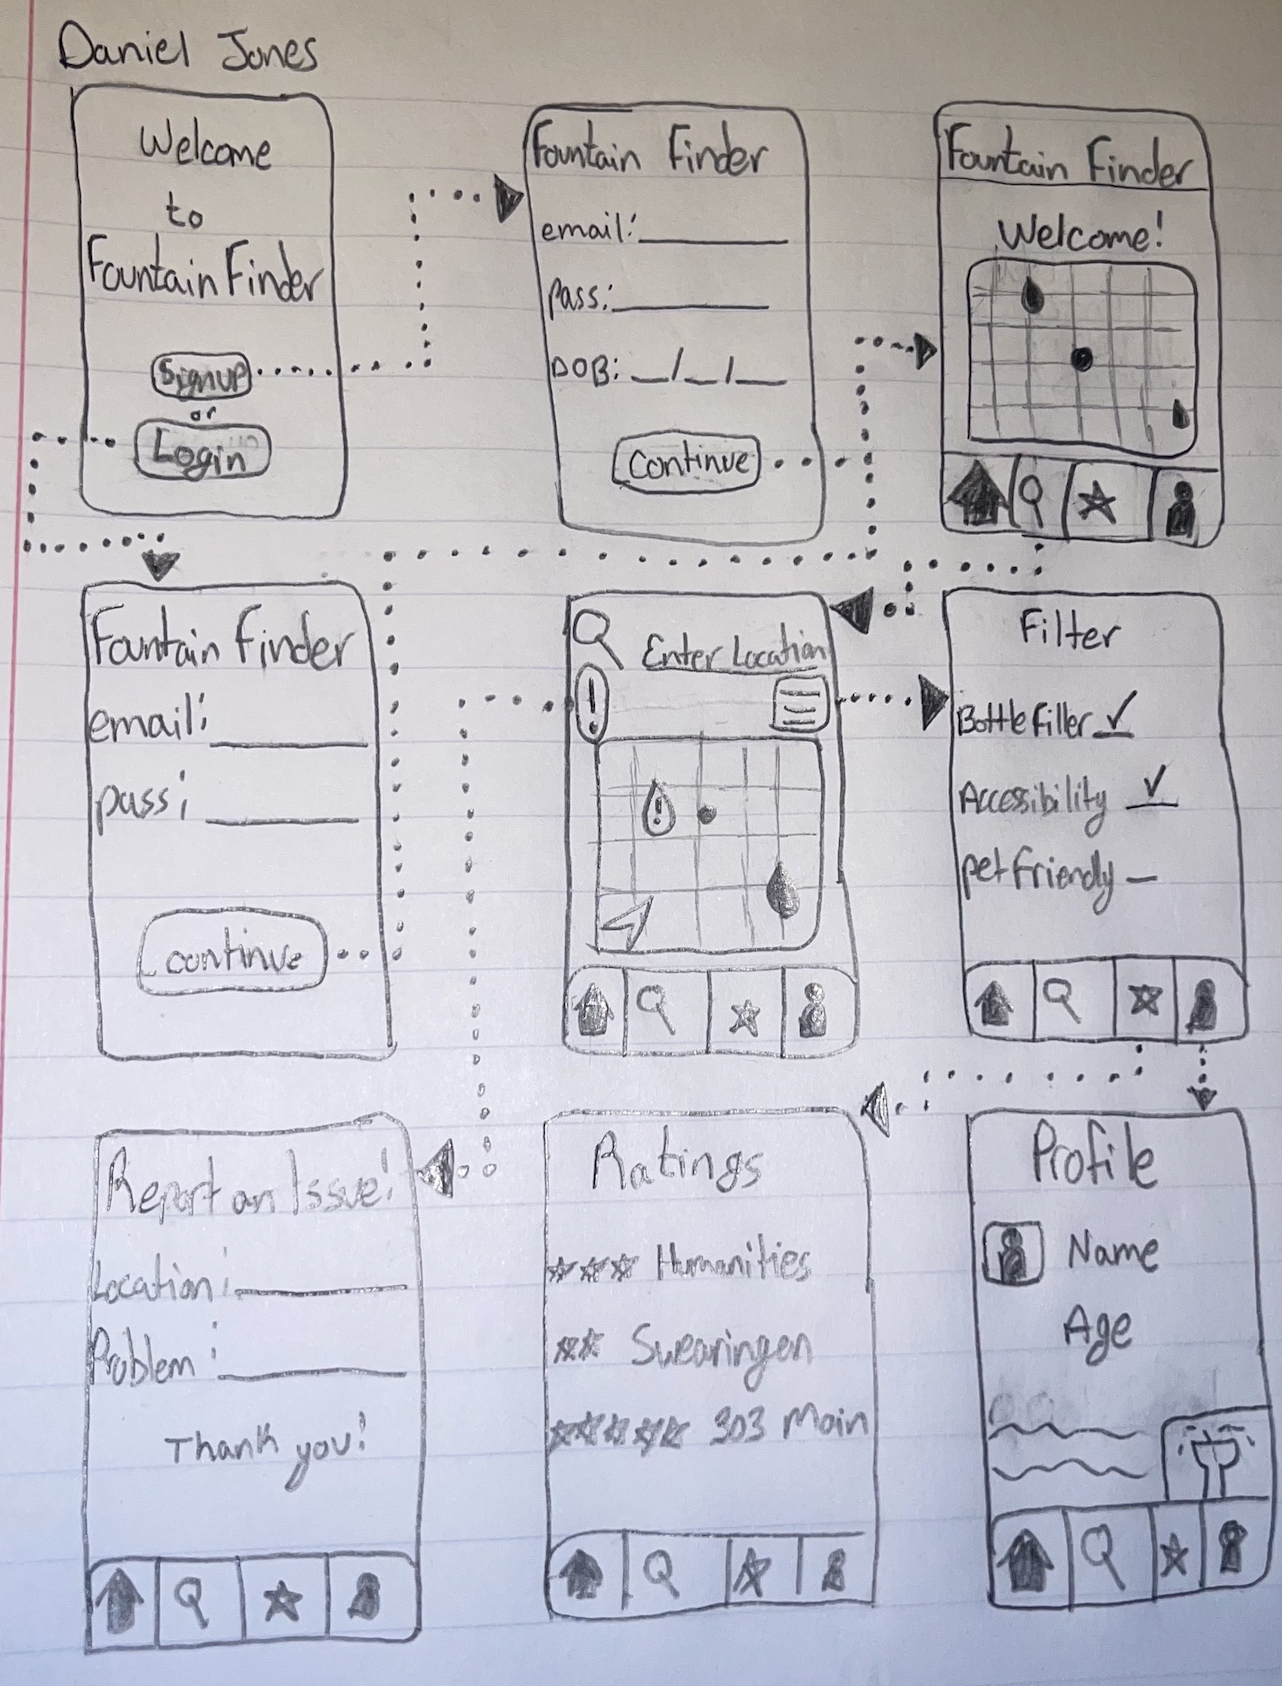 Daniel Jones
Welcome
to
Fountain Finder
Signup
or
Login
Fountain Finder
email:
pass:
DOB: __/__/__
continue
Fountain Finder
Welcome!
Fountain Finder
email:
pass:
continue
Enter Location
!
!
Filter
Bottle Filler ✓
Accessibility ✓
pet friendly
Report an Issue!
Location:
Problem:
Thank you!
Ratings
☆☆☆ Humanities
☆☆ Swearingen
☆☆☆☆☆ 303 Main
Profile
Name
Age